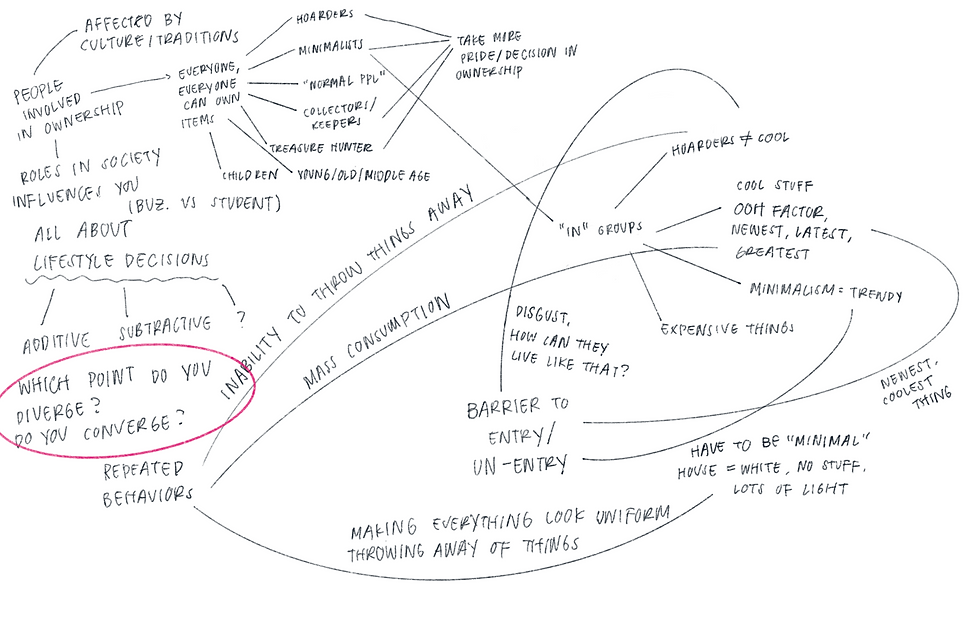 AFFECTED BY
CULTURE/TRADITIONS
PEOPLE
INVOLVED
IN OWNERSHIP
EVERYONE,
EVERYONE
CAN OWN
ITEMS
HOARDERS
MINIMALISTS
"NORMAL PPL"
COLLECTORS/
KEEPERS
TREASURE HUNTER
CHILDREN
YOUNG/OLD/MIDDLE AGE
TAKE MORE
PRIDE/DECISION IN
OWNERSHIP
ROLES IN SOCIETY
INFLUENCES YOU
(BUZ. VS STUDENT)
ALL ABOUT
LIFESTYLE DECISIONS
ADDITIVE
SUBTRACTIVE
?
WHICH POINT DO YOU
DIVERGE?
DO YOU CONVERGE?
REPEATED
BEHAVIORS
INABILITY TO THROW THINGS AWAY
MASS CONSUMPTION
MAKING EVERYTHING LOOK UNIFORM
THROWING AWAY OF THINGS
"IN" GROUPS
HOARDERS ≠ COOL
COOL STUFF
OOH FACTOR,
NEWEST, LATEST,
GREATEST
MINIMALISM = TRENDY
EXPENSIVE THINGS
DISGUST,
HOW CAN THEY
LIVE LIKE THAT?
BARRIER TO
ENTRY/
UN-ENTRY
NEWEST,
COOLEST
THING
HAVE TO BE "MINIMAL"
HOUSE = WHITE, NO STUFF,
LOTS OF LIGHT